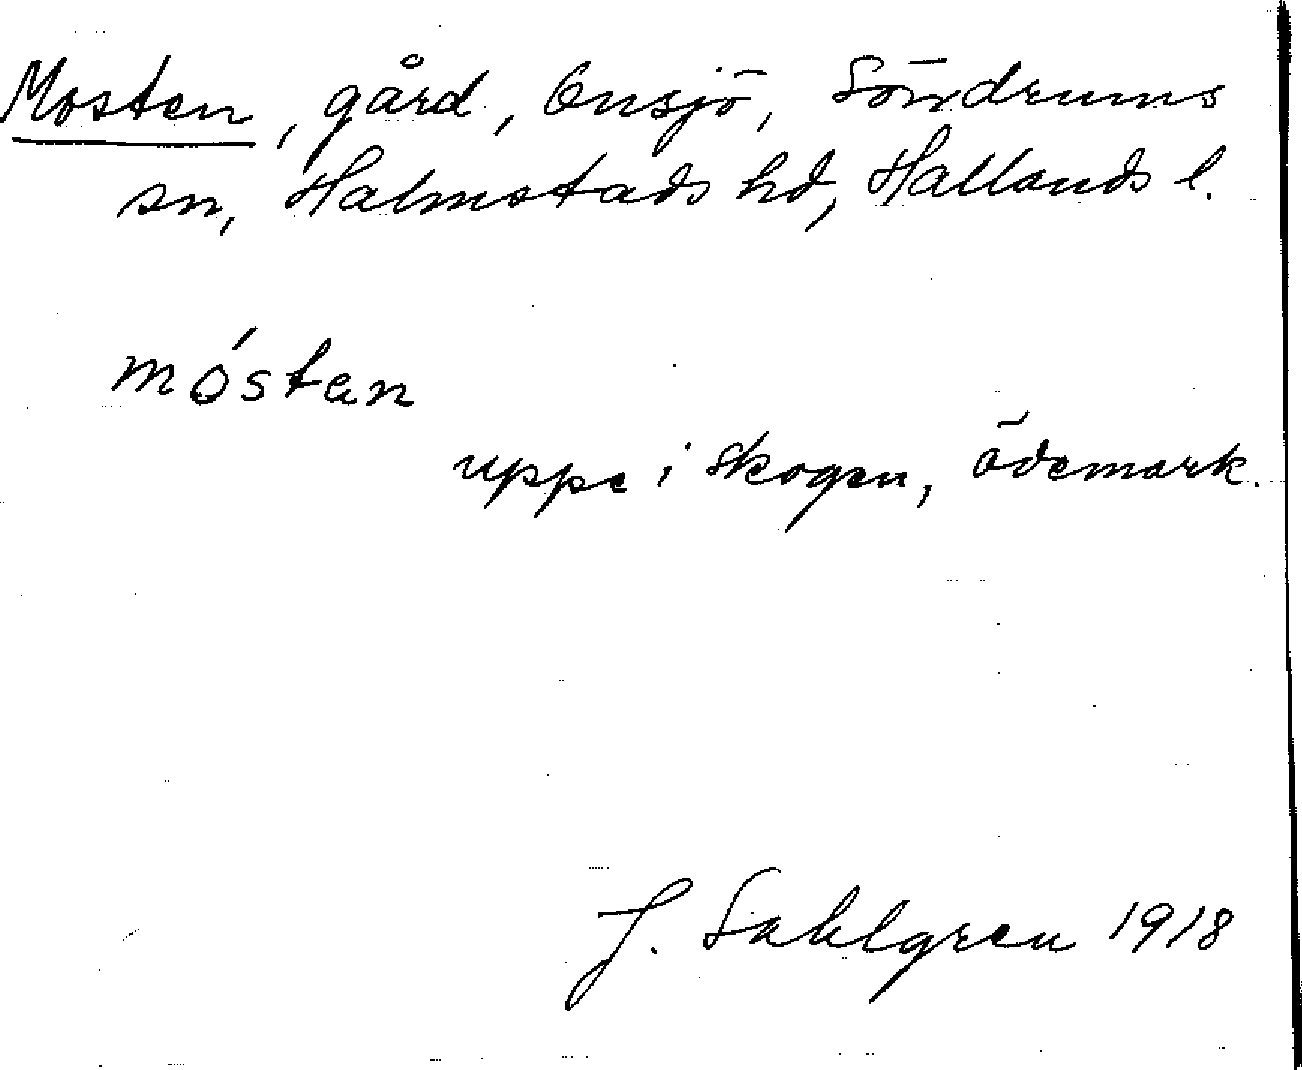 Mosten, gård, Ensjö, Söndrums
sn, Halmstads hd, Hallands l.
móstan
uppe i skogen, ödemark.
J. Sahlgren 1918